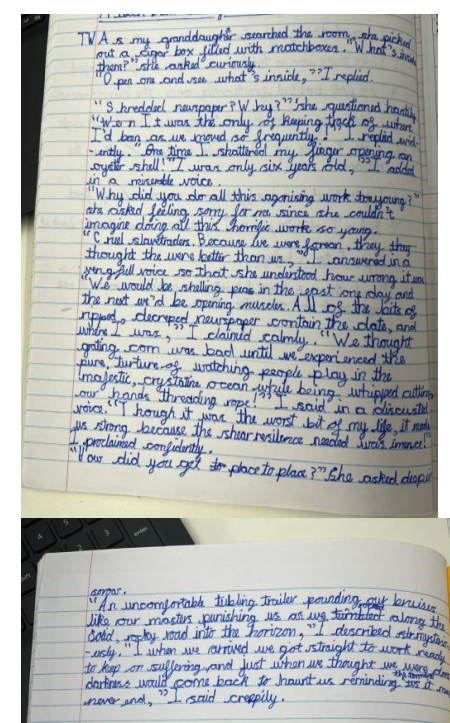 TW As my granddaughter searched the room, she picked
out a cigar box filled with matchboxes. "What's inside
them?" she asked curiously.
"Open one and see what's inside," I replied.
"Shredded newspaper? Why?" she questioned hastily.
It was the only of keeping track of where
I'd been as we moved so frequently." I replied evid-
-ently. "One time I shattered my finger opening an
oyster shell!" I was only six years old," I added
in a miserable voice.
"Why did you do all this agonising work so young?"
she asked feeling sorry for me since she couldn't
imagine doing all this horrific work so young.
"Cruel slavetraders. Because we were they
thought the were better than us." I answered in a
voice so that she understood how wrong it was
"We would be shelling peas in the east ony day and
the next we'd be opening muscles. All of the bits of
ripped, decreped newspaper contain the date, and
where I was," I claimed calmly. "We thought
grating corn was bad until we experienced the
pure, turture of watching people play in the
majestic, crystaline ocean while being whipped cutting
our hands threading rope!" I said in a discusted
voice. "Though it was the worst bit of my life, it
us strong because the shear resilience needed was
I proclaimed confidently.
"How did you get to place to place?" She asked
"An uncomfortable tubling trailer pounding our bruises
like our masters punishing us as we tumbled along the
road into the horizon," I described
-usly. "I when we arrived we got straight to work ready
to keep on suffering and just when we thought we were done
darkness would come back to haunt us reminding us it
never end," I said creppily.